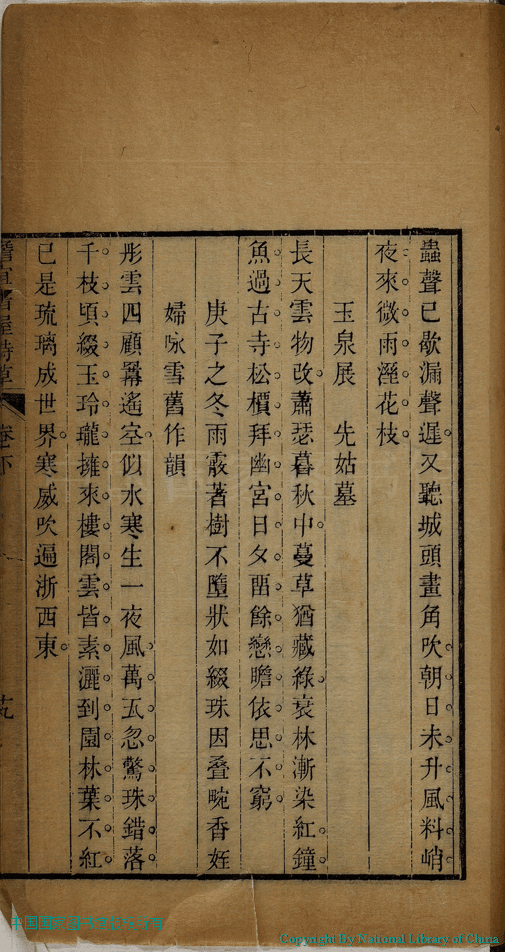 蟲聲已歇漏聲遲又聽城頭畫角吹朝日未升風料峭
夜來微雨溼花枝
玉泉展 先姑墓
長天雲物改蕭瑟暮秋中蔓草猶藏綠衰林漸染紅鐘
魚過古寺松檟拜幽宮日夕畱餘戀瞻依思不窮
庚子之冬雨霰著樹不墮狀如綴珠因叠畹香姪
婦咏雪舊作韻
彤雲四顧羃遙空似水寒生一夜風萬瓦忽驚珠錯落
千枝頃綴玉玲瓏擁來樓閣雲皆素灑到園林葉不紅
已是琉璃成世界寒威吹遍浙西東
詩草 卷下
Copyright By National Library of China